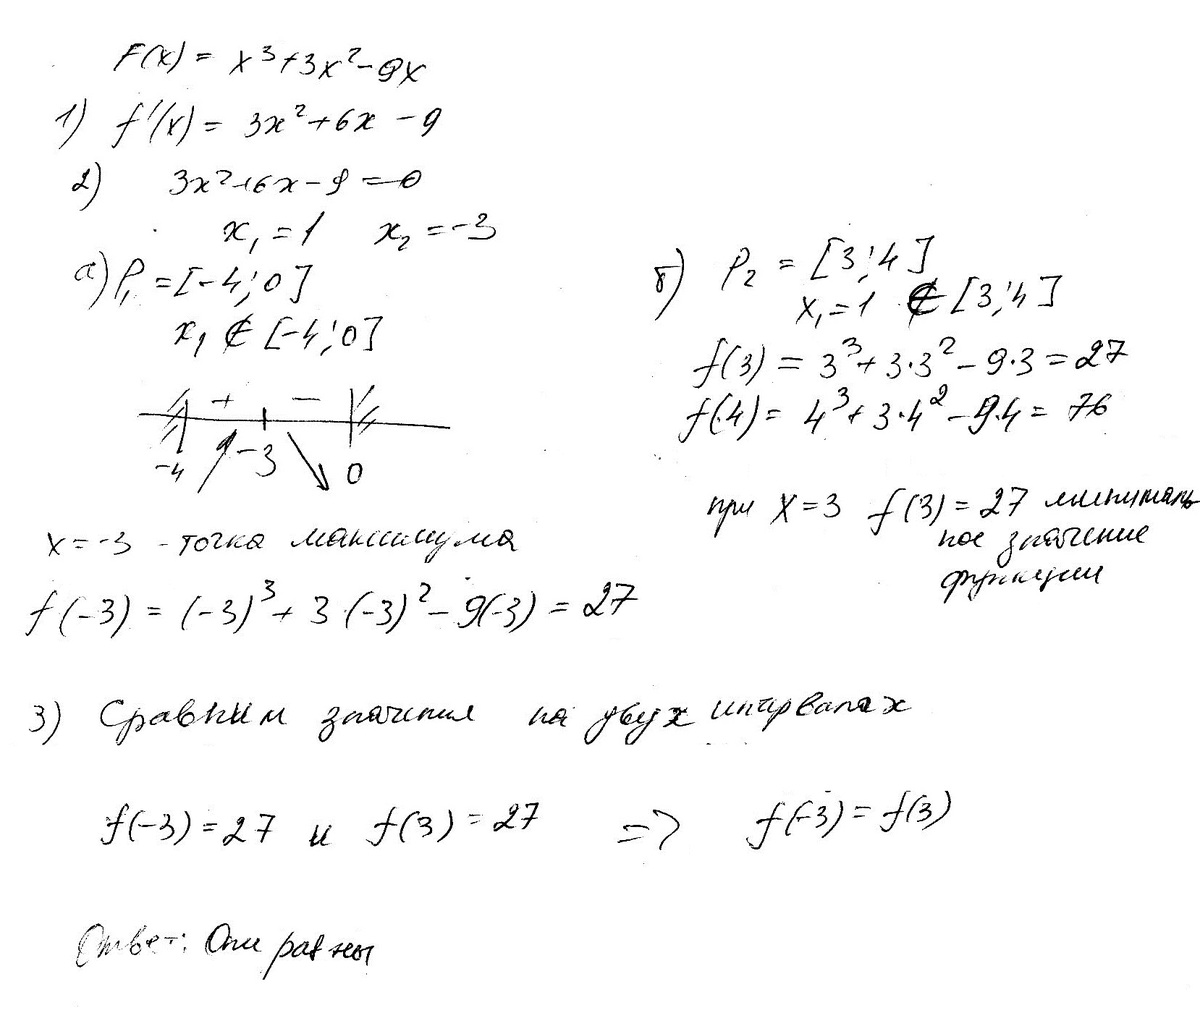 F(x) = x³+3x²-9x
1) f'(x) = 3x²+6x-9
2) 3x²+6x-9=0
x₁=1 x₂=-3
а) P₁=[-4;0]
x₁ ∉ [-4;0]
+ −
-4 -3 0
x=-3 - точка максимума
f(-3) = (-3)³+3·(-3)²-9(-3) = 27
б) P₂ = [3;4]
x₁=1 ∉ [3;4]
f(3) = 3³+3·3²-9·3=27
f(4) = 4³+3·4²-9·4= 76
при x=3 f(3)=27 минималь
ное значение
функции
3) Сравним значения на двух интервалах
f(-3)=27 и f(3)=27 => f(-3)=f(3)
Ответ: Они равны